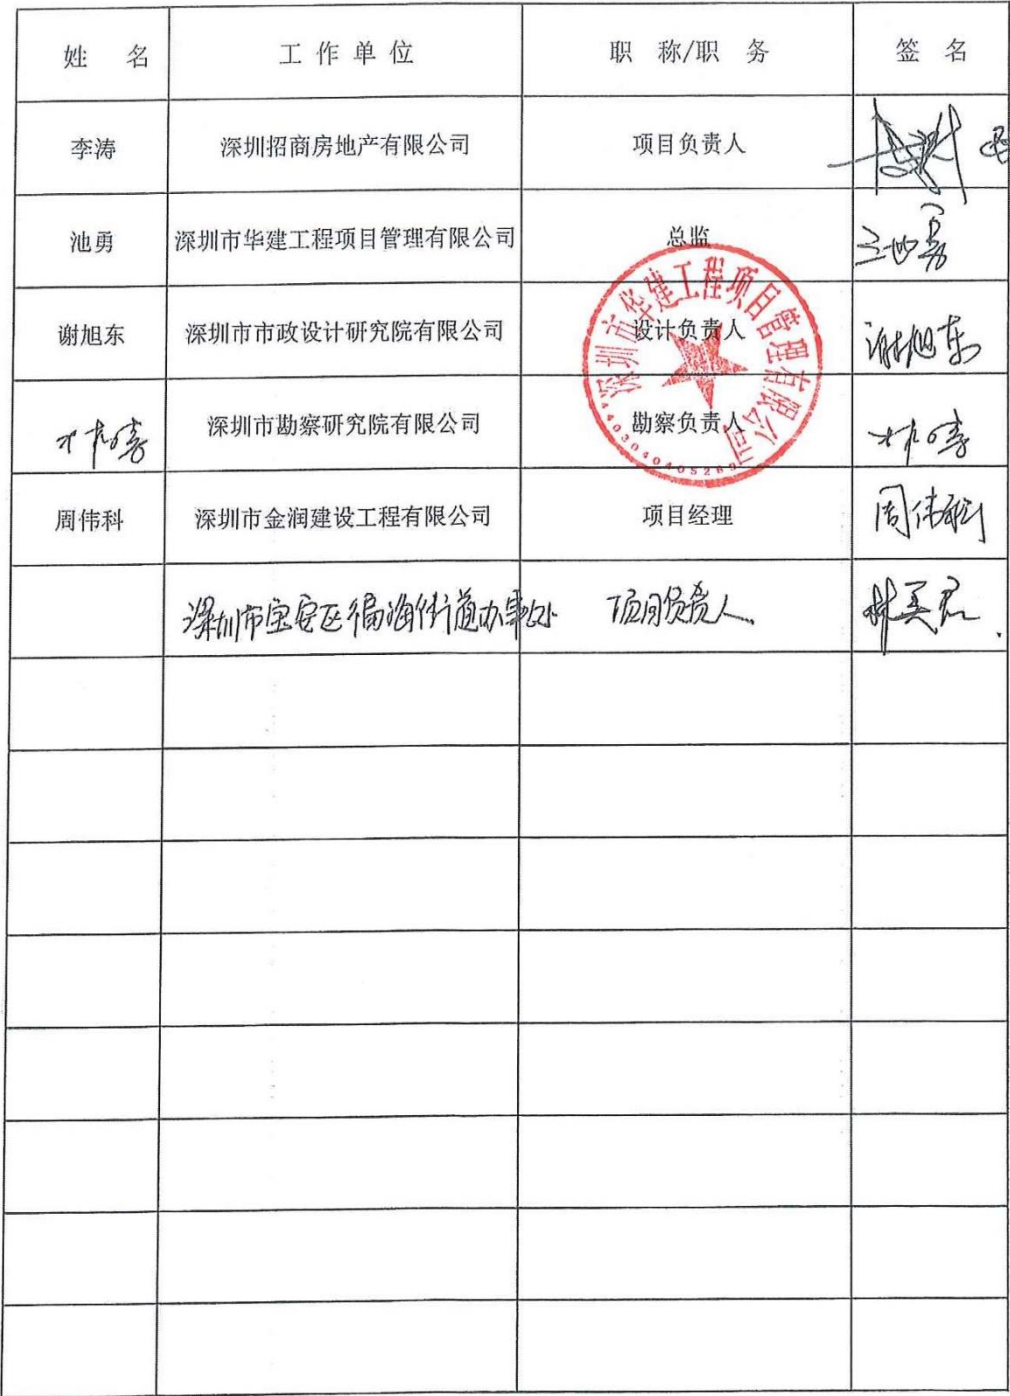 姓 名 工作单位 职 称/职 务 签 名
李涛 深圳招商房地产有限公司 项目负责人
池勇 深圳市华建工程项目管理有限公司 总监 池勇
谢旭东 深圳市市政设计研究院有限公司 设计负责人 谢旭东
深圳市勘察研究院有限公司 勘察负责人
周伟科 深圳市金润建设工程有限公司 项目经理 周伟科
深圳市宝安区福海街道办事处 项目负责人 林美君
深圳市华建工程项目管理有限公司